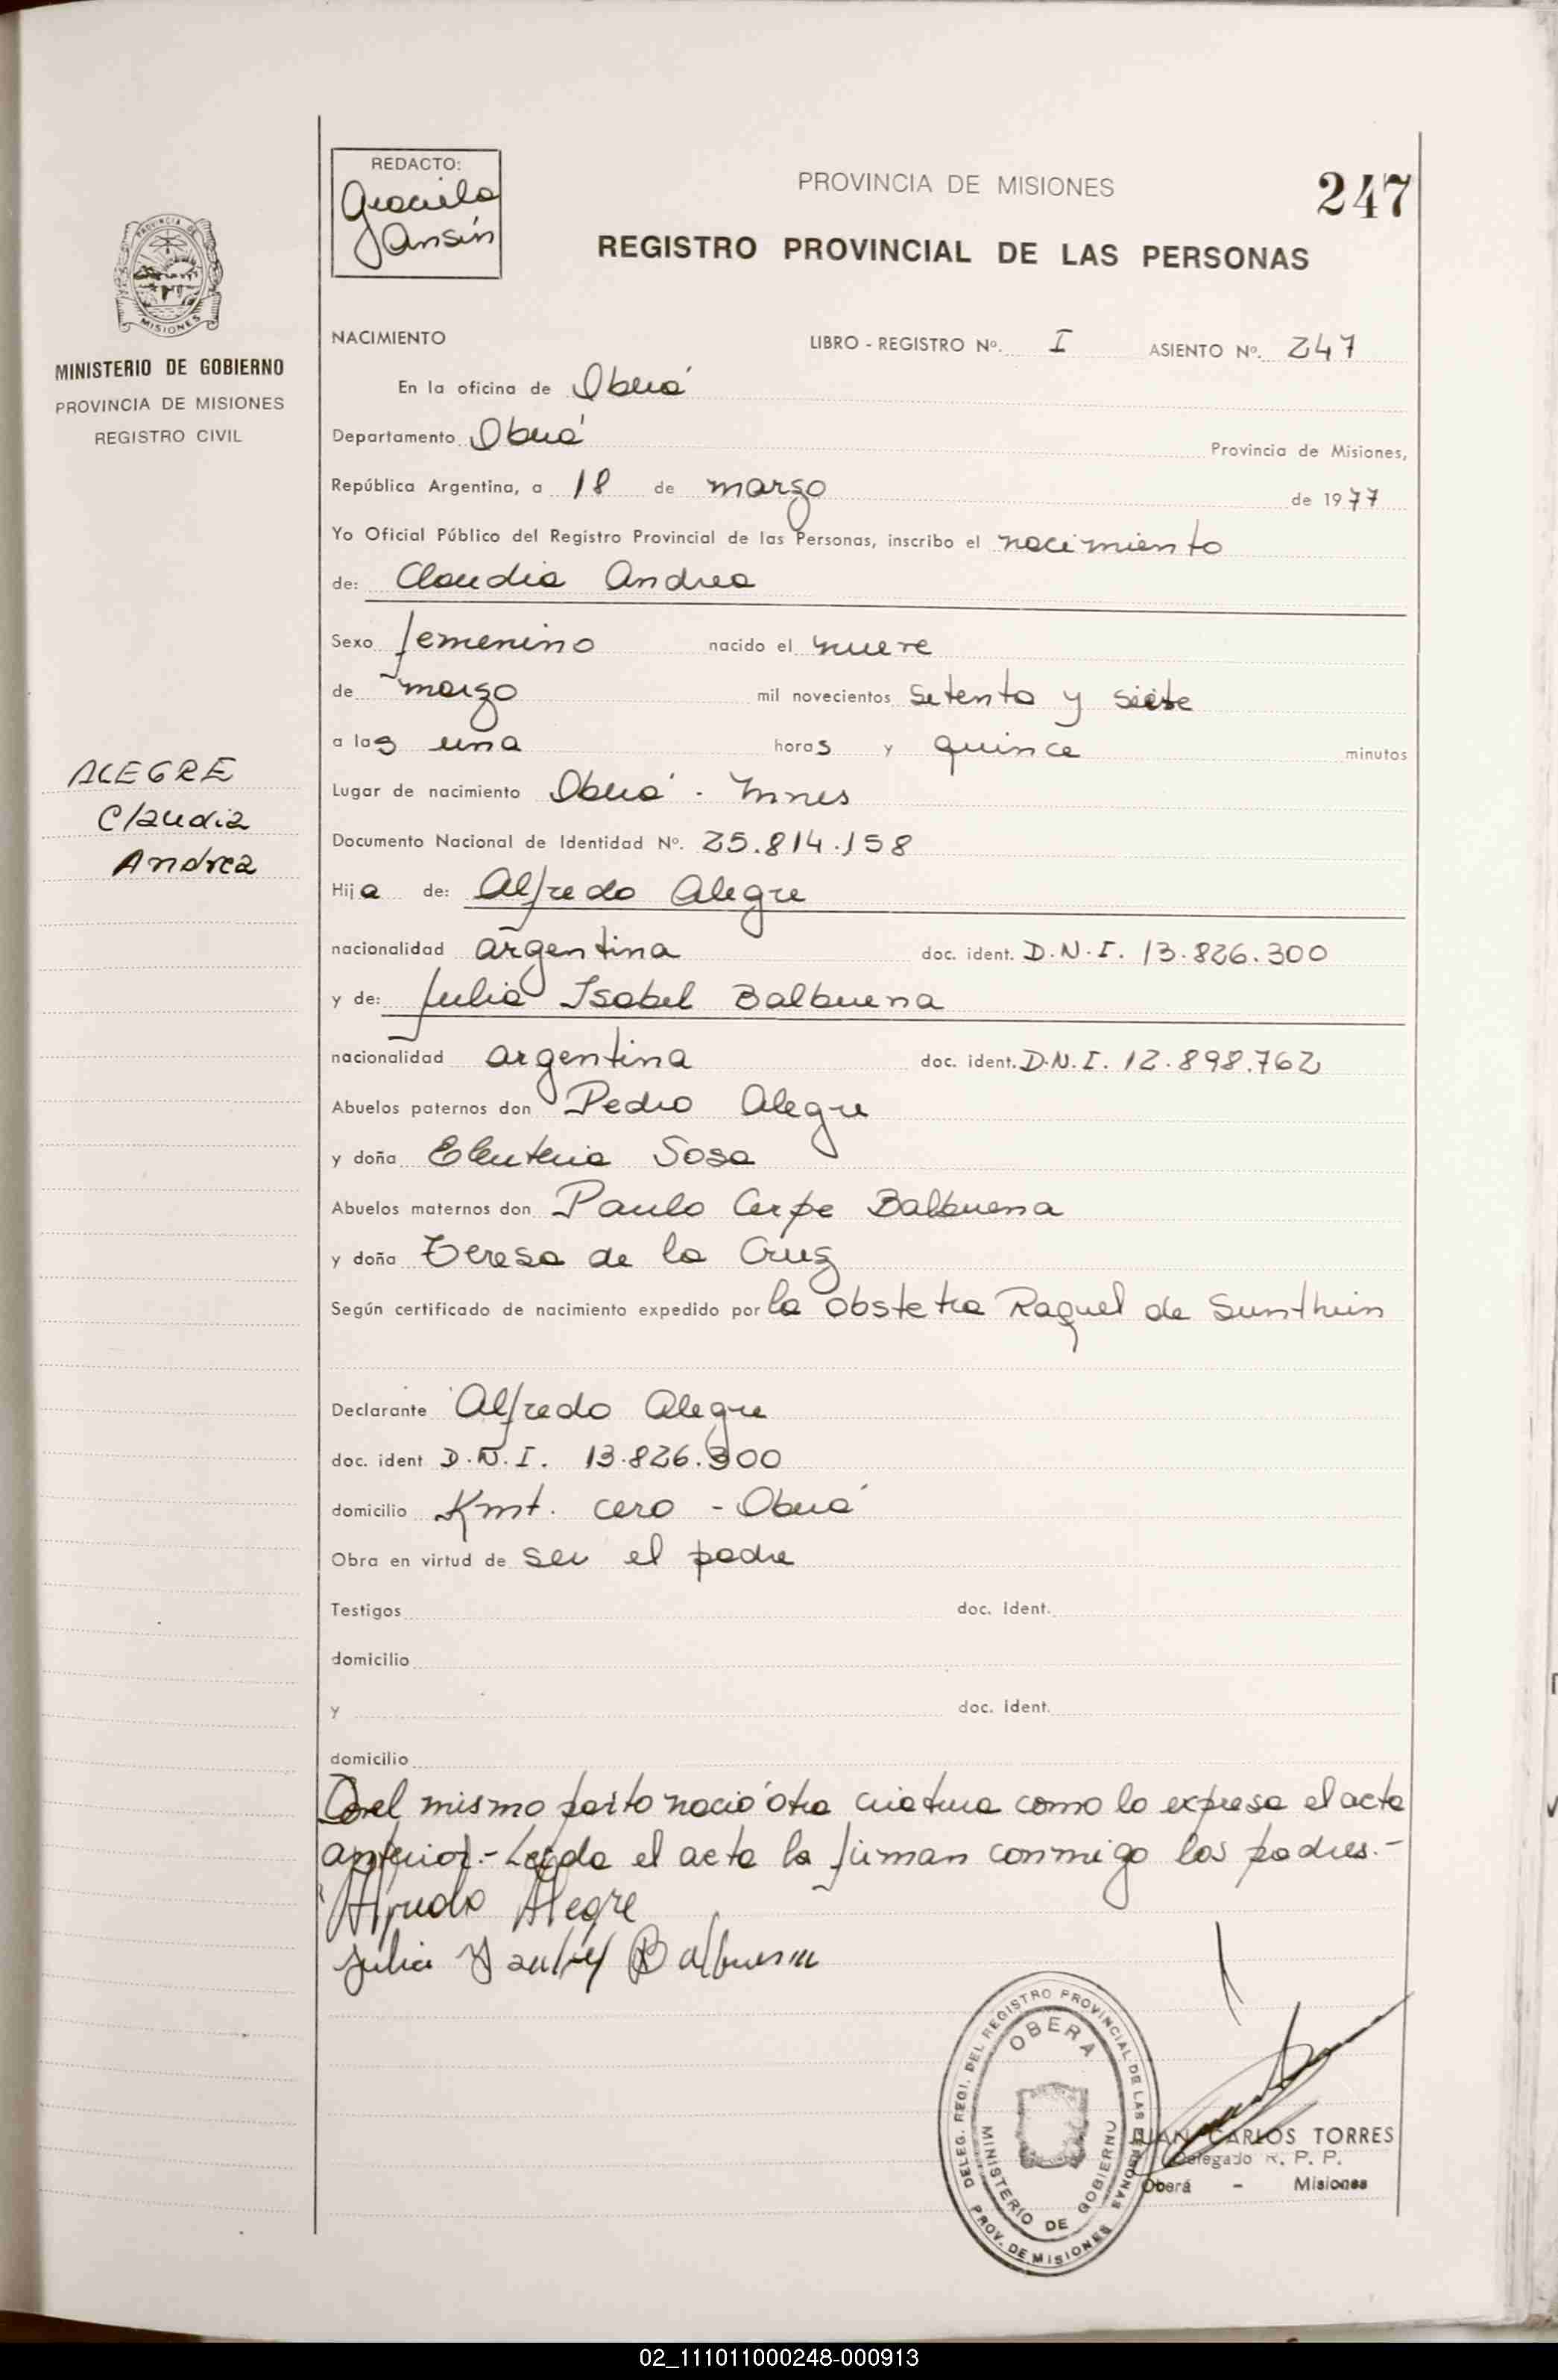 REDACTO:
Graciela
Jansin
PROVINCIA DE MISIONES
247
REGISTRO PROVINCIAL DE LAS PERSONAS
PROVINCIA DE
MISIONES
MINISTERIO DE GOBIERNO
PROVINCIA DE MISIONES
REGISTRO CIVIL
NACIMIENTO LIBRO - REGISTRO Nº. I ASIENTO Nº. 247
En la oficina de Oberá
Departamento Oberá Provincia de Misiones,
República Argentina, a 18 de marzo de 1977
Yo Oficial Público del Registro Provincial de las Personas, inscribo el nacimiento
de: Claudia Andrea
Sexo femenino nacido el nueve
de marzo mil novecientos setenta y siete
a las una horas y quince minutos
Lugar de nacimiento Oberá - Mnes
ALEGRE
Claudia
Andrea
Documento Nacional de Identidad Nº. 25.814.158
Hija de: Alfredo Alegre
nacionalidad argentina doc. ident. D.N.I. 13.826.300
y de: Julia Isabel Balbuena
nacionalidad argentina doc. ident. D.N.I. 12.898.762
Abuelos paternos don Pedro Alegre
y doña Eleuteria Sosa
Abuelos maternos don Paulo Cerpe Balbuena
y doña Teresa de la Cruz
Según certificado de nacimiento expedido por la obstetra Raquel de
Declarante Alfredo Alegre
doc. ident D.N.I. 13.826.300
domicilio Kmt. cero - Oberá
Obra en virtud de ser el padre
Testigos doc. ident.
domicilio
y doc. ident.
domicilio
Del mismo parto nació otra criatura como lo expresa el acta
anterior.- Leída el acta la firman conmigo los padres.-
Alfredo Alegre
Julia Ysabel Balbuena
DELEG. REGI. DEL REGISTRO PROVINCIAL DE LAS PERSONAS
OBERA
MINISTERIO DE GOBIERNO
PROV. DE MISIONES
JUAN CARLOS TORRES
Delegado R. P. P.
Oberá - Misiones
02_111011000248-000913